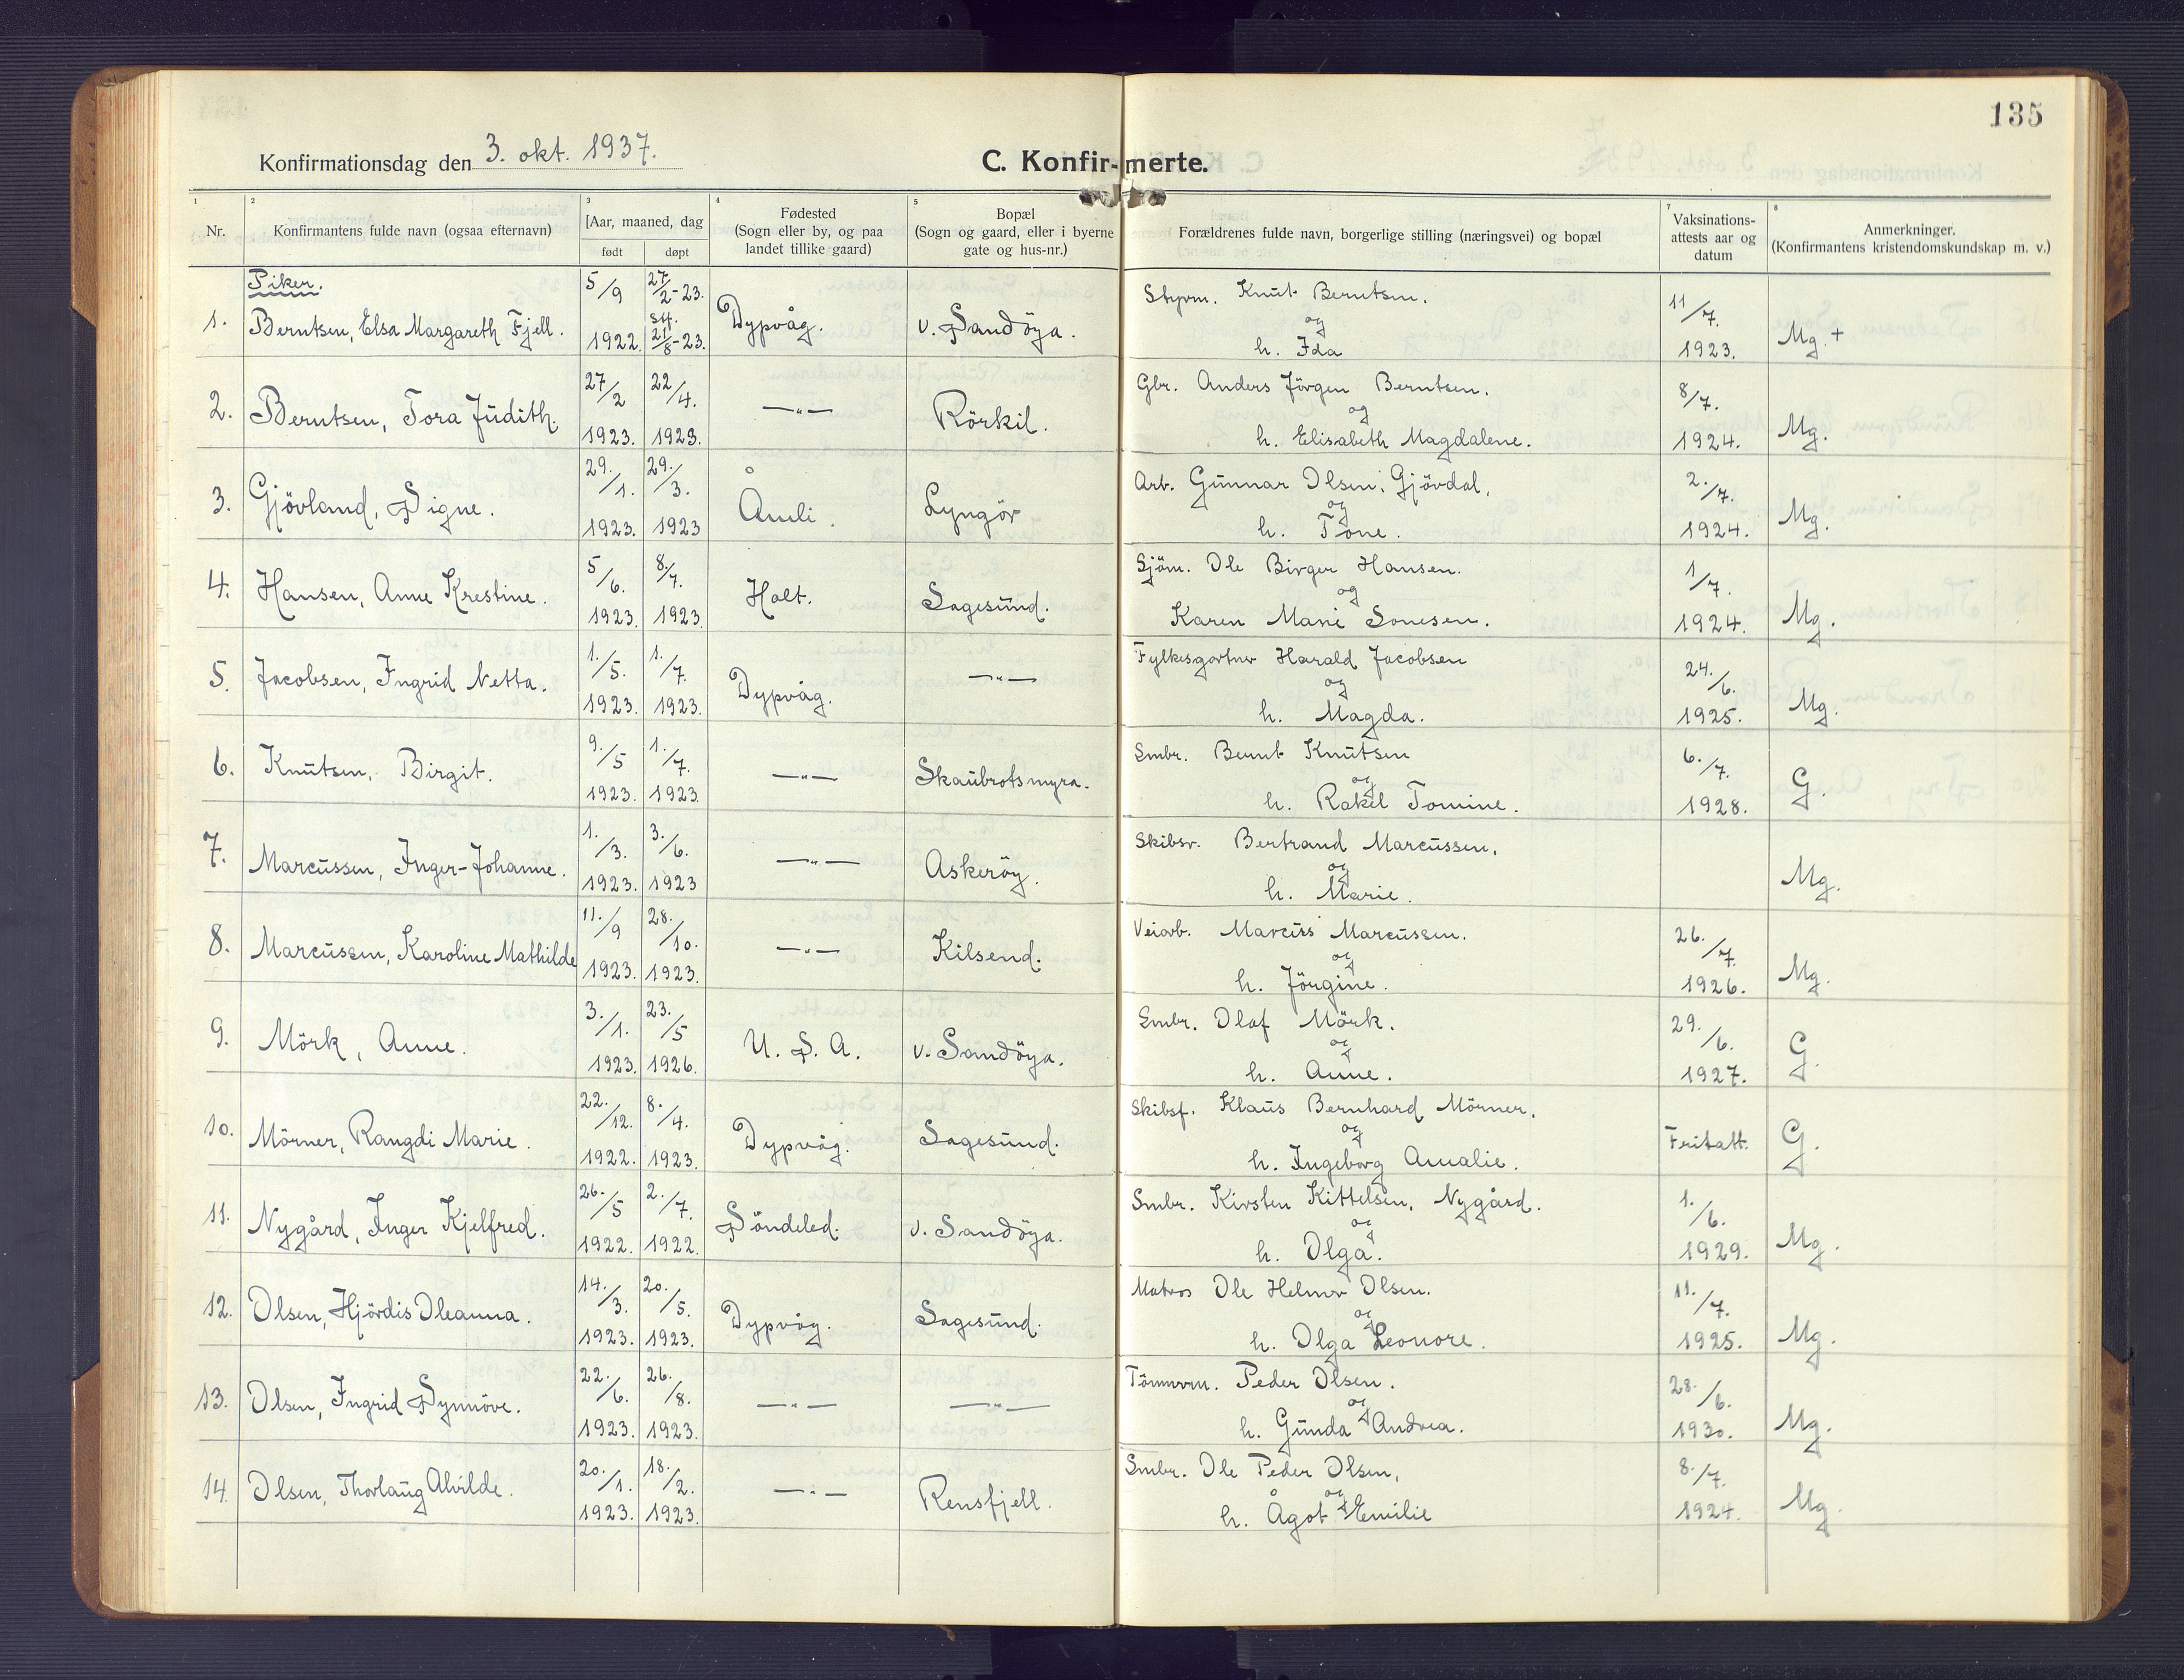 135
Konfirmationsdag den 3. okt. 1937.
C. Konfir-merte.
1 2 3 4 5 7 8
Nr.
Konfirmantens fulde navn (ogsaa efternavn)
[Aar, maaned, dag
født døpt
Fødested
(Sogn eller by, og paa
landet tillike gaard)
Bopæl
(Sogn og gaard, eller i byerne
gate og hus-nr.)
Forældrenes fulde navn, borgerlige stilling (næringsvei) og bopæl
Vaksinations-
attests aar og
datum
Anmerkninger.
(Konfirmantens kristendomskundskap m. v.)
Piker.
1. Berntsen, Elsa Margareth Fjell. 5/9 1922. 27/2-23. st. 21/8-23. Dypvåg. v. Sandöya. Styrm. Knut Berntsen. og h. Ida 11/7. 1923. Mg. +
2. Berntsen, Tora Judith. 27/2 1923. 22/4. 1923. —"— Rörkil. Gbr. Anders Jörgen Berntsen. og h. Elisabeth Magdalene. 8/7. 1924. Mg.
3. Gjövland, Signe. 29./1. 1923. 29./3. 1923 Åmli. Lyngör Arb. Gunnar Olsen, Gjövdal, og h. Tone. 2./7. 1924. Mg.
4. Hansen, Anne Krestine. 5/6. 1923. 8./7. 1923. Holt. Sagesund. Sjöm. Ole Birger Hansen. og Karen Marie Sonesen. 1/7. 1924. Mg.
5. Jacobsen, Ingrid Netta. 1./5. 1923. 1./7. 1923. Dypvåg. —"— Fylkesgartner Harald Jacobsen og h. Magda. 24./6. 1925. Mg.
6. Knutsen, Birgit. 9./5 1923. 1./7. 1923. —"— Skaubrotsmyra. Smbr. Bernt Knutsen og h. Rakel Tomine. 6./7. 1928. G.
7. Marcussen, Inger-Johanne. 1./3. 1923. 3./6. 1923 —"— Askeröy. Skibsr. Bertrand Marcussen, og h. Marie. Mg.
8. Marcussen, Karoline Mathilde 11./9 1923. 28./10. 1923. —"— Kilsend. Veiarb. Marcus Marcussen. og h. Jörgine. 26./7. 1926. Mg.
9. Mörk, Anne. 3./1. 1923. 23./5 1926. U. S. A. v. Sandöya. Smbr. Olaf Mörk. og h. Anne. 29./6. 1927. G.
10. Mörner, Rangdi Marie. 22./12. 1922. 8./4. 1923. Dypvåg. Sagesund. Skibsf. Klaus Bernhard Mörner, og h. Ingeborg Amalie. Fritatt. G.
11. Nygård, Inger Kjelfred. 26./5 1922. 2./7. 1922. Söndeled. v. Sandöya. Smbr. Kirsten Kittelsen, Nygård. og h. Olga. 1./6. 1929. Mg.
12. Olsen, Hjördis Oleanna. 14./3. 1923. 20./5. 1923. Dypvåg. Sagesund. Matros Ole Helmer Olsen. og h. Olga Leonore. 11./7. 1925. Mg.
13. Olsen, Ingrid Synnöve. 22./6. 1923. 26./8. 1923. —"— —"— Tömmerm. Peder Olsen. og h. Gunda Andrea. 28./6. 1930. Mg.
14. Olsen, Thorlaug Alvilde. 20./1. 1923. 18./2. 1923. —"— Rensfjell. Smbr. Ole Peder Olsen, og h. Ågot Emilie 8./7. 1924. Mg.